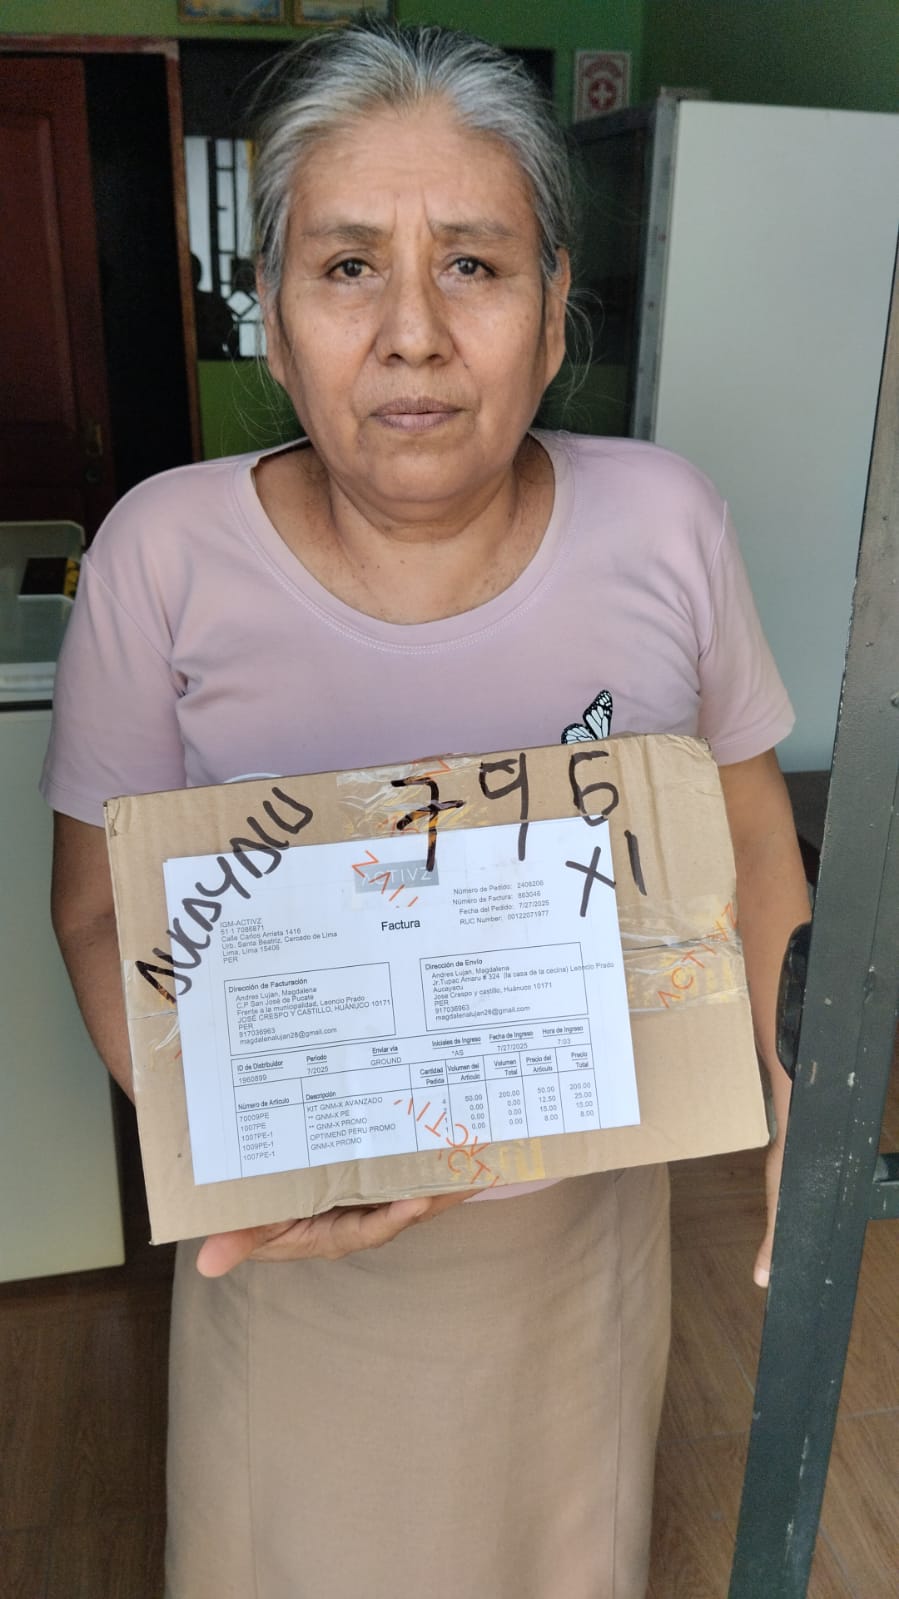 796
XI
AUCAYACU
ACTIVZ
Factura
IGM-ACTIVZ
51 1 7086871
Calle Carlos Arrieta 1416
Urb. Santa Beatriz, Cercado de Lima
Lima, Lima 15406
PER
Número de Pedido: 2406206
Número de Factura: 863046
Fecha del Pedido: 7/27/2025
RUC Number: 00122071977
Dirección de Facturación
Andres Lujan, Magdalena
C.P San José de Pucate
Frente a la municipalidad, Leoncio Prado
JOSÉ CRESPO Y CASTILLO, HUÁNUCO 10171
PER
917036963
magdalenalujan28@gmail.com
Dirección de Envío
Andres Lujan, Magdalena
Jr.Tupac Amaru # 324 (la casa de la cecina) Leoncio Prado
Aucayacu
Jose Crespo y castillo, Huánuco 10171
PER
917036963
magdalenalujan28@gmail.com
ID de Distribuidor Periodo Enviar vía Iniciales de Ingreso Fecha de Ingreso Hora de Ingreso
1960899 7/2025 GROUND *AS 7/27/2025 7:03
Número de Artículo Descripción Cantidad Pedida Volumen del Artículo Volumen Total Precio del Artículo Precio Total
70009PE KIT GNM-X AVANZADO 4 50.00 200.00 50.00 200.00
1007PE ** GNM-X PE 2 0.00 0.00 12.50 25.00
1007PE-1 ** GNM-X PROMO 0.00 0.00 15.00 15.00
1009PE-1 OPTIMEND PERU PROMO 0.00 0.00 8.00 8.00
1007PE-1 GNM-X PROMO
ACTIVZ